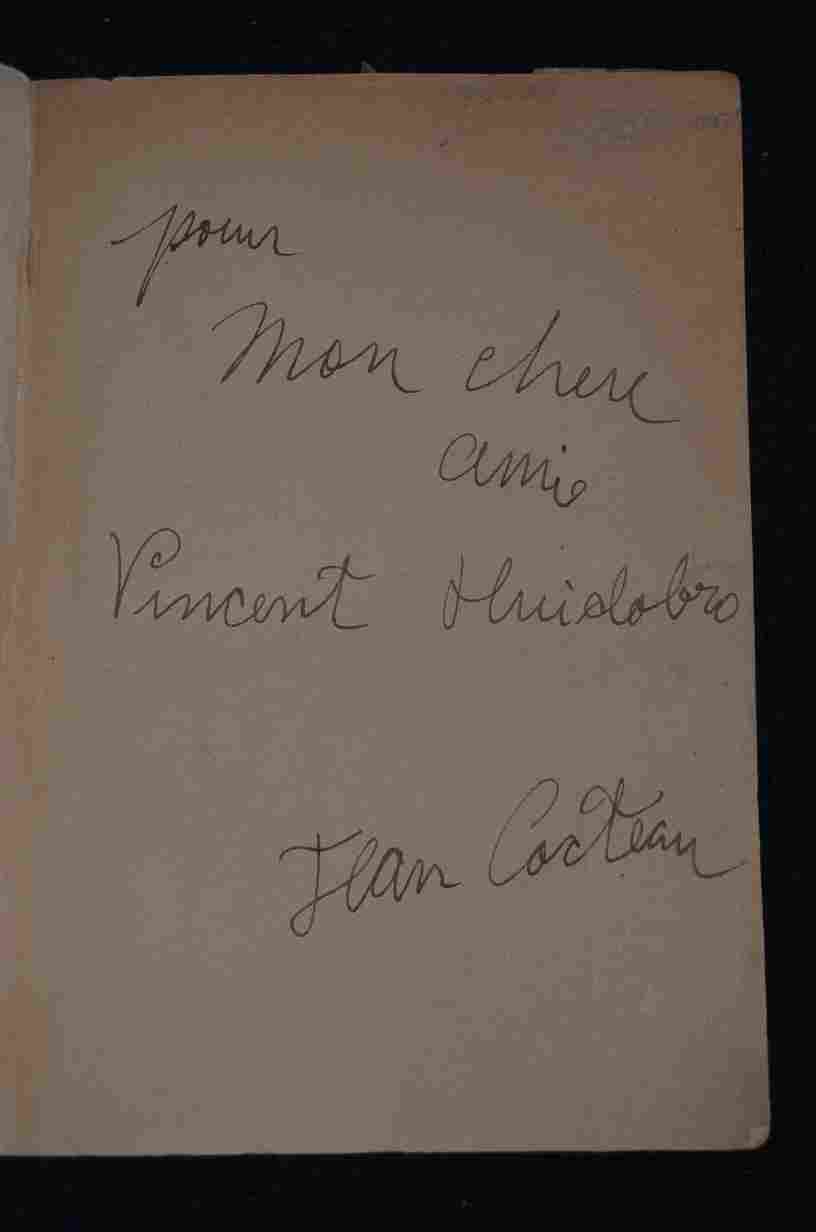 pour
Mon chere
amie
Vincent Huidobro
Jean Cocteau